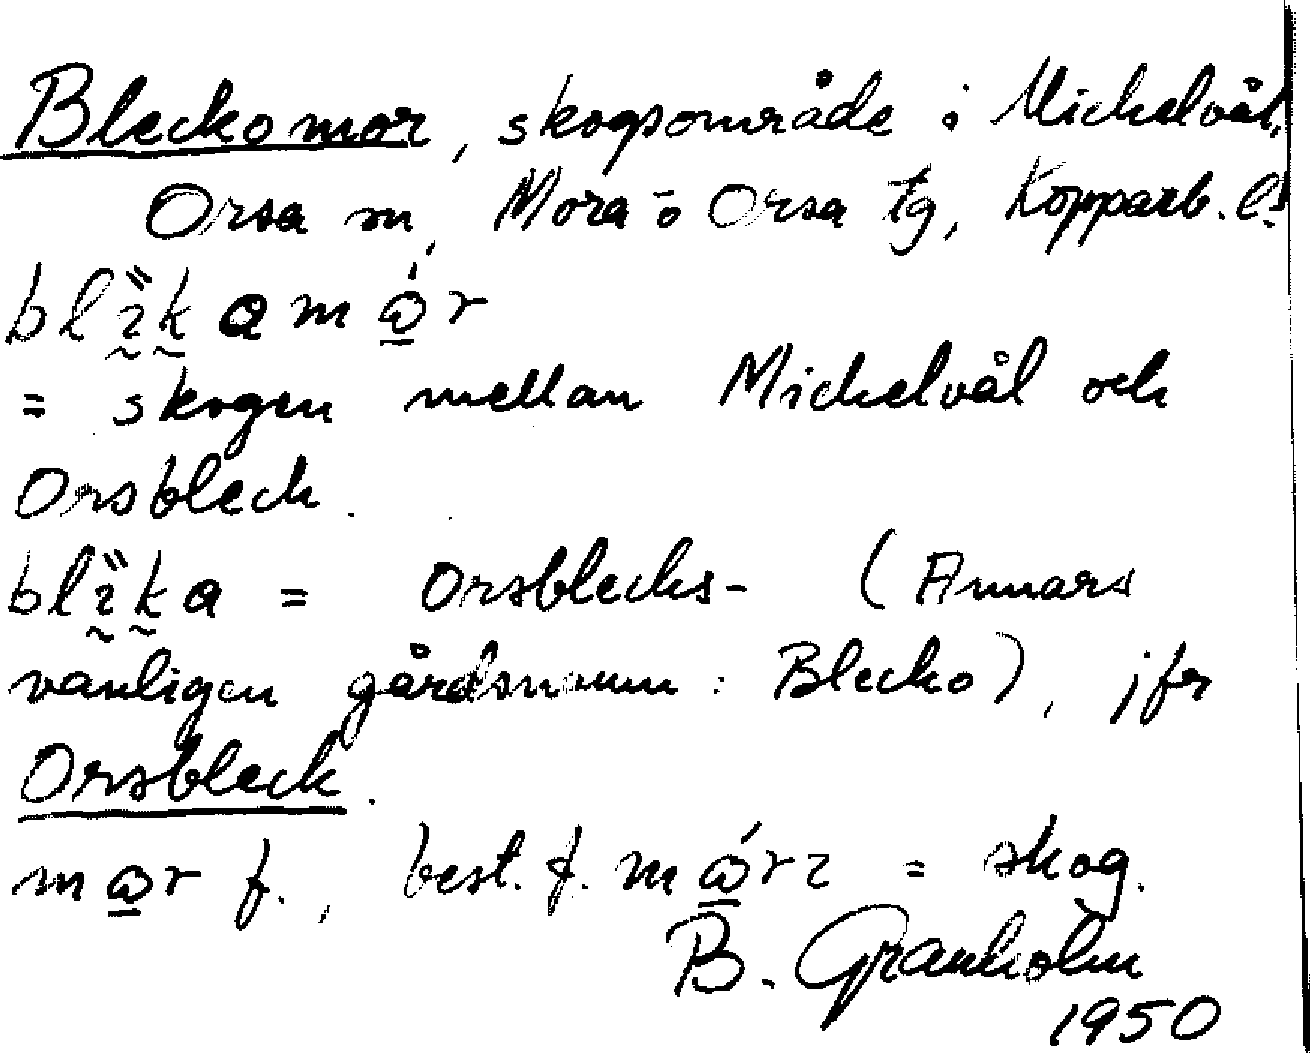 Bleckomor, skogsområde i Mickelvål,
Orsa sn, Mora o Orsa tg, Kopparb. l.
= skogen mellan Mickelvål och
Orsbleck.
= Orsblecks- (Annars
vanligen gårdsnamn: Blecko), jfr
Orsbleck.
f., best. f. = skog.
B. Granholm
1950